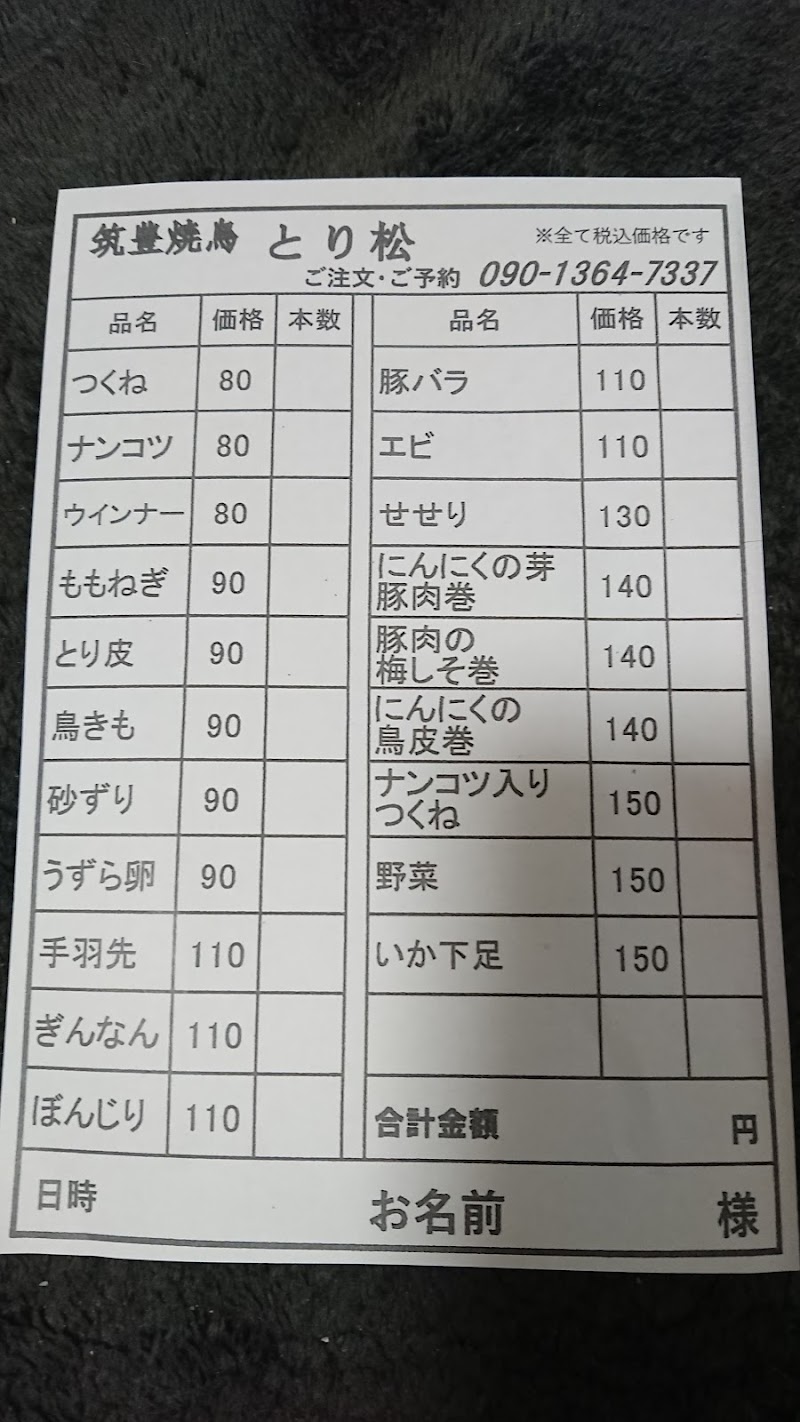 筑豊焼鳥 とり松 ※全て税込価格です
ご注文・ご予約 090-1364-7337
品名 価格 本数 品名 価格 本数
つくね 80 豚バラ 110
ナンコツ 80 エビ 110
ウインナー 80 せせり 130
ももねぎ 90 にんにくの芽
豚肉巻 140
とり皮 90 豚肉の
梅しそ巻 140
鳥きも 90 にんにくの
鳥皮巻 140
砂ずり 90 ナンコツ入り
つくね 150
うずら卵 90 野菜 150
手羽先 110 いか下足 150
ぎんなん 110
ぼんじり 110 合計金額 円
日時 お名前 様